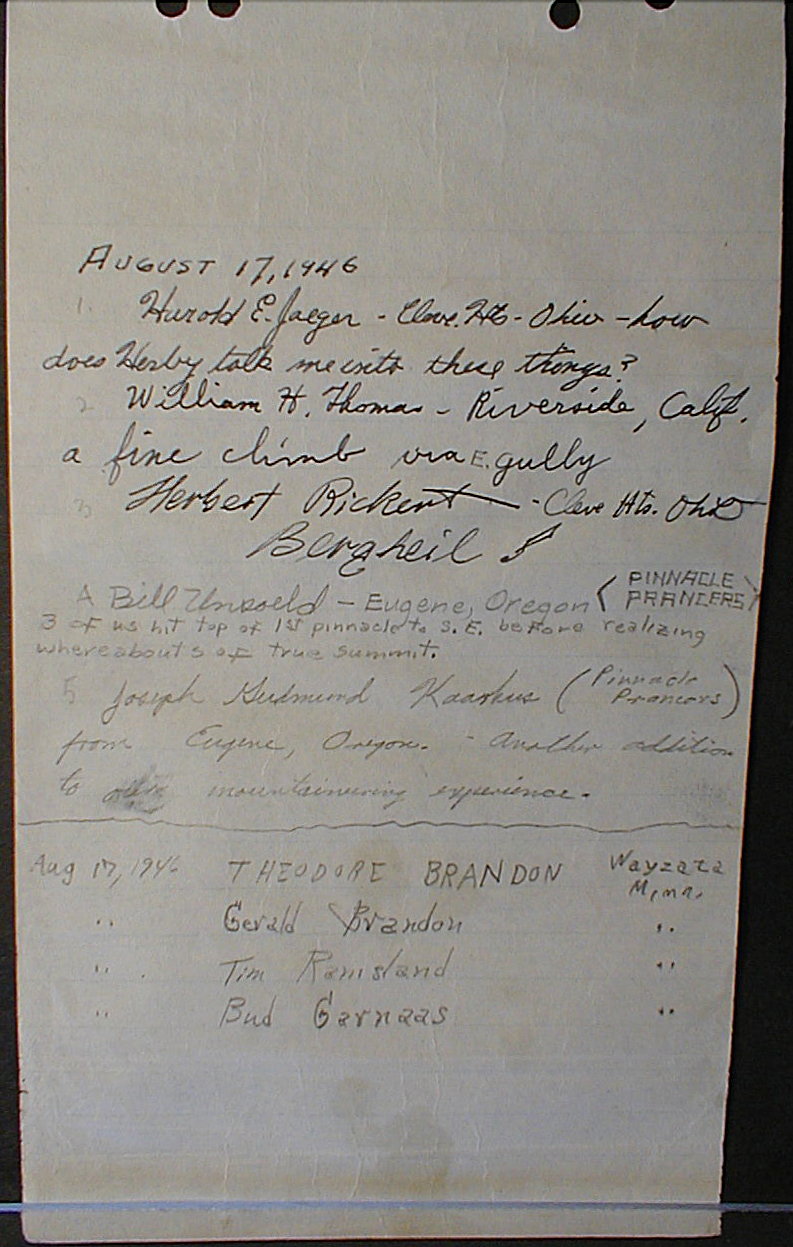 AUGUST 17, 1946
1. Harold E. Jaeger - Cleve. Hts - Ohio - how
does Herby talk me into these things?
2 William H. Thomas - Riverside, Calif.
a fine climb via E. gully
3 Herbert Rickert - Cleve Hts. Ohio
Bergheil
4 Bill Unsoeld - Eugene, Oregon (PINNACLE PRANCERS)
3 of us hit top of 1st pinnacle to S.E. before realizing
whereabouts of true summit.
5 Joseph Gudmund Kaarhus (Pinnacle Prancers)
from Eugene, Oregon. - Another addition
to our mountaineering experience.
Aug 17, 1946 THEODORE BRANDON Wayzata Minn.
" Gerald Brandon "
" Tim Ramsland "
" Bud Garnaas "